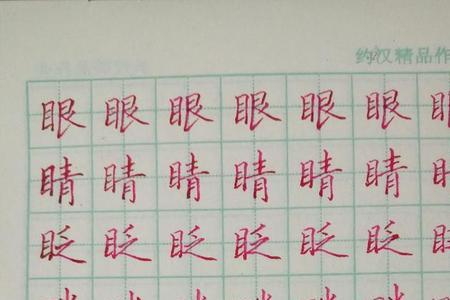 约汉精品作
眼眼眼眼眼眼
睛睛睛睛睛睛
眨眨眨眨眨眨